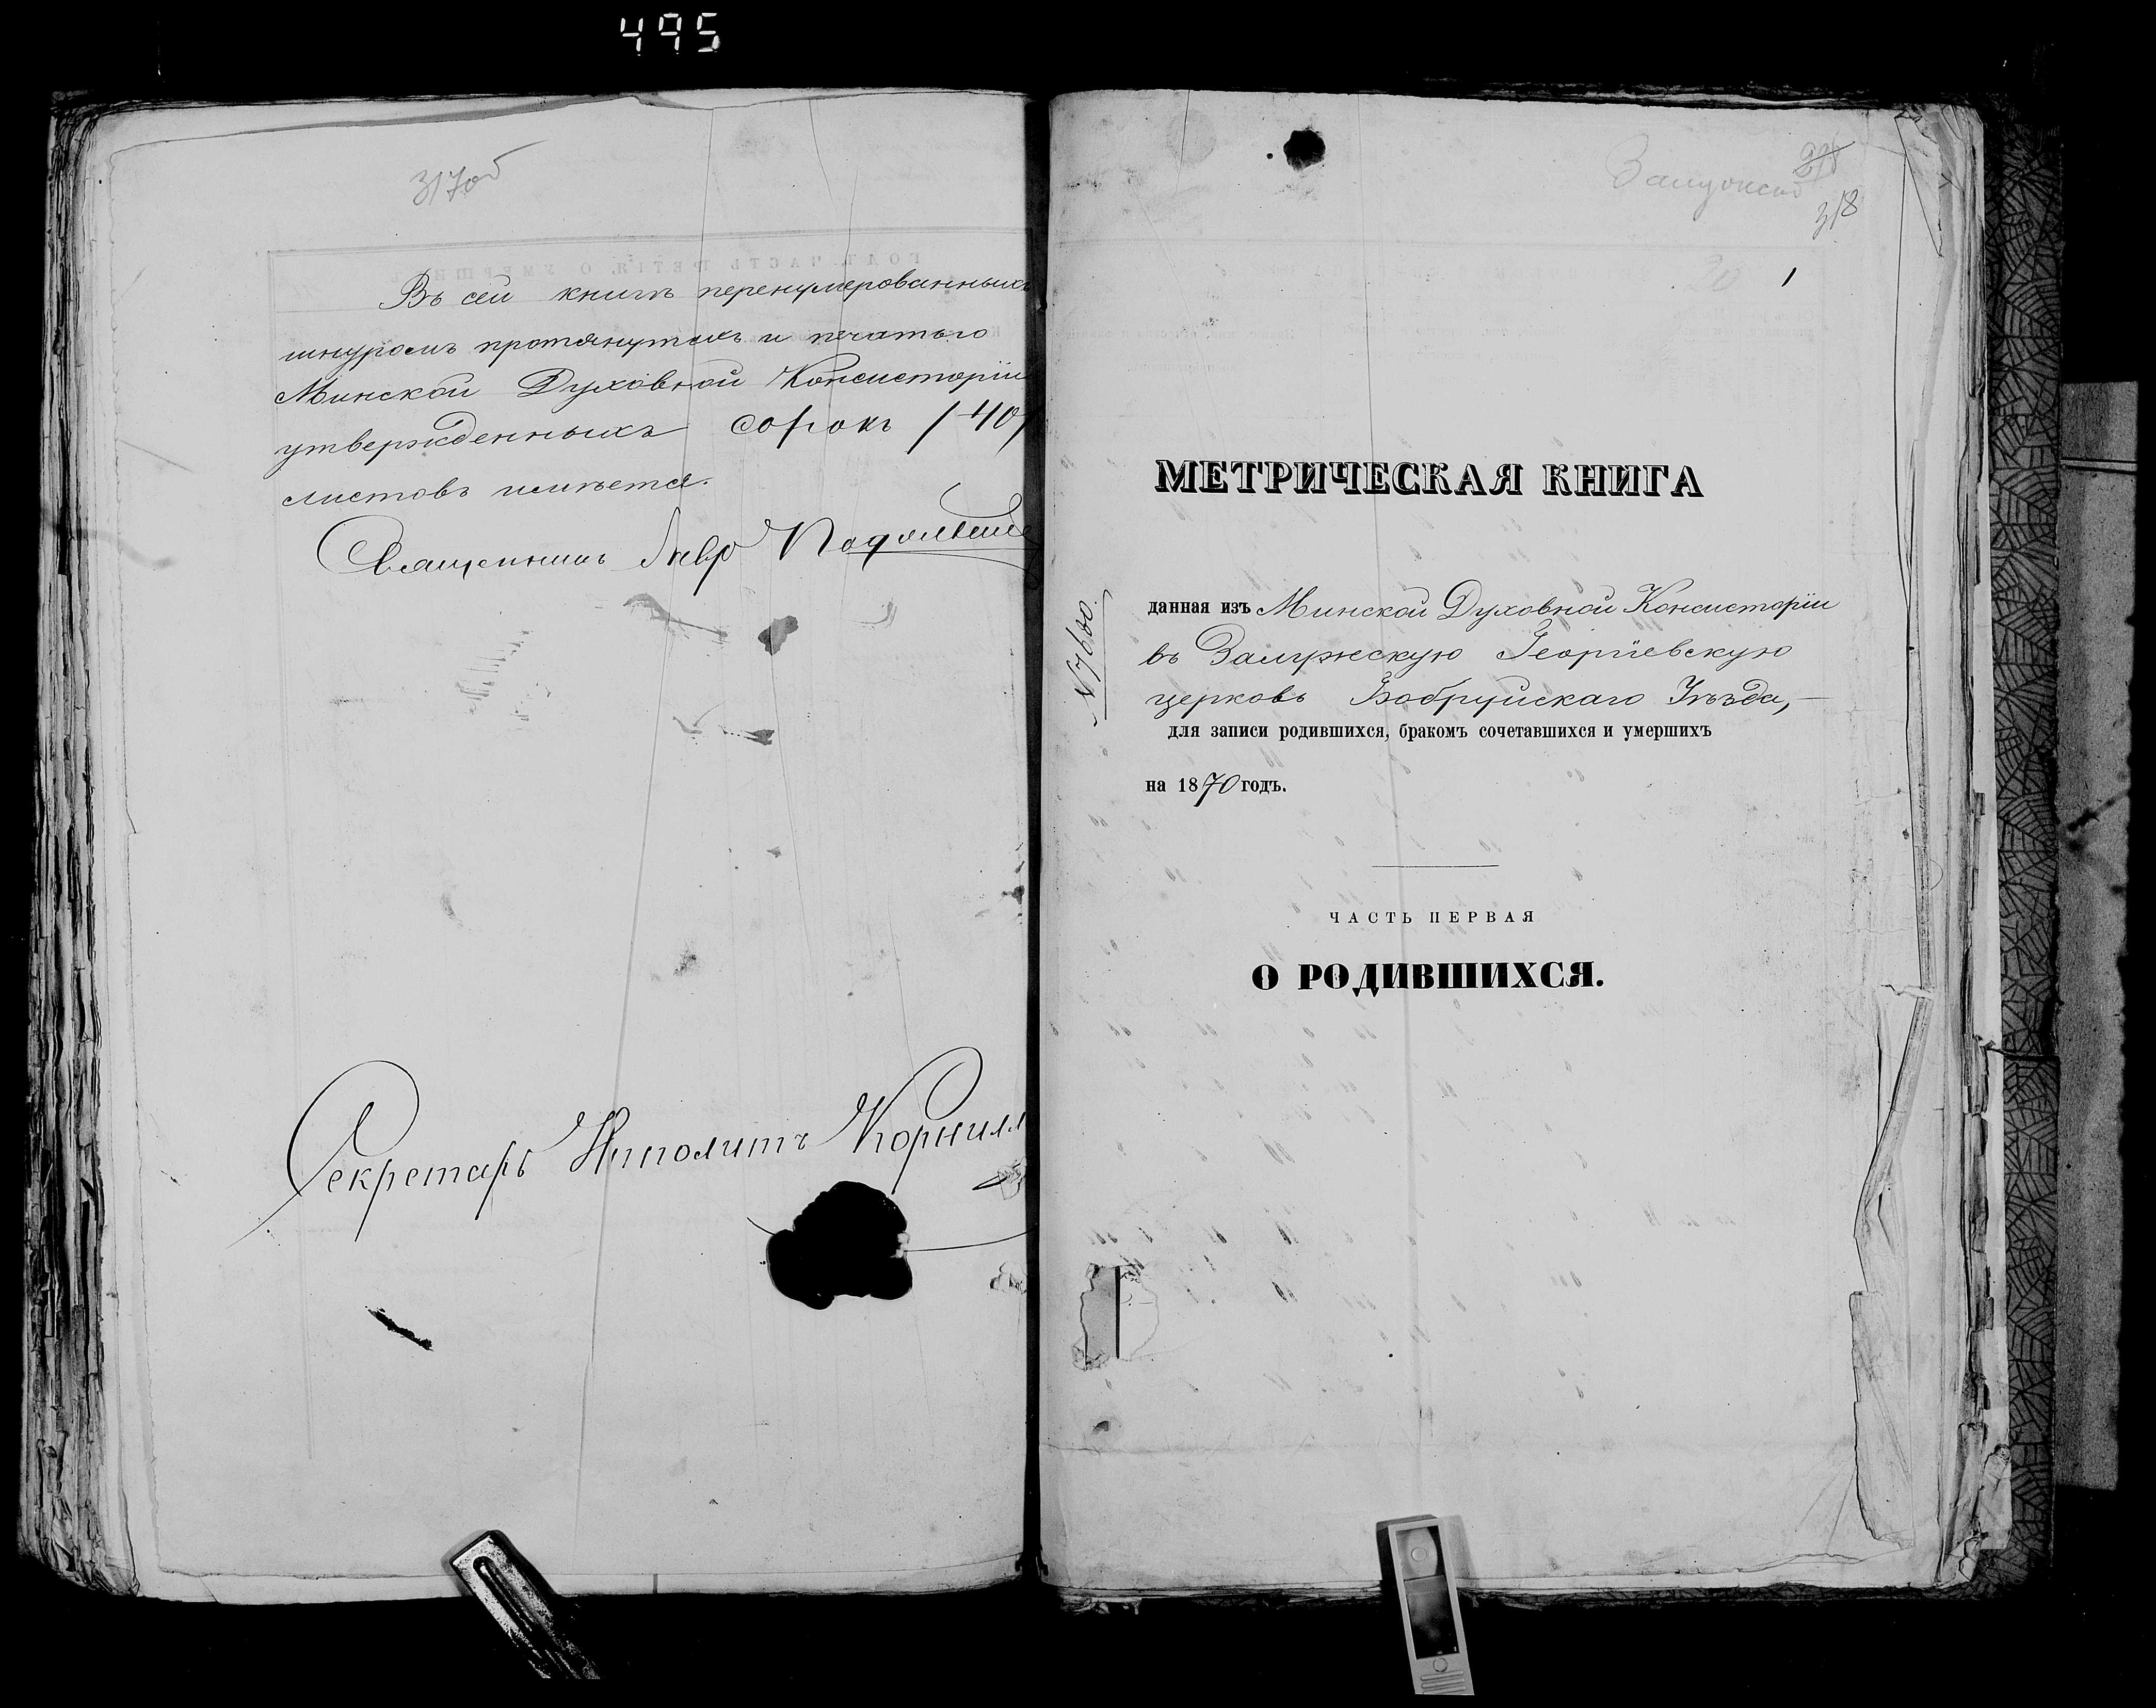 495
317об
Въ сей книгѣ перенумерованныхъ
шнуромъ протянутыхъ и печатью
Минской Духовной Консисторіи
утвержденныхъ сорокъ /40/
листовъ имѣется.
Священникъ
Секретарь Ипполитъ Корнил
318
1
МЕТРИЧЕСКАЯ КНИГА
№ 7600.
данная изъ Минской Духовной Консисторіи
въ Залужскую Георгіевскую
церковь Бобруйскаго Уѣзда,—
для записи родившихся, бракомъ сочетавшихся и умершихъ
на 1870 годъ.
ЧАСТЬ ПЕРВАЯ
О РОДИВШИХСЯ.